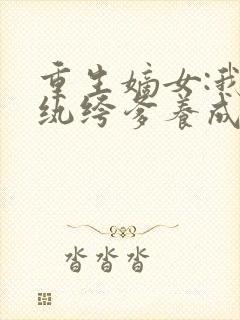 重生嫡女:我
纨绔爹养成
沓沓沓